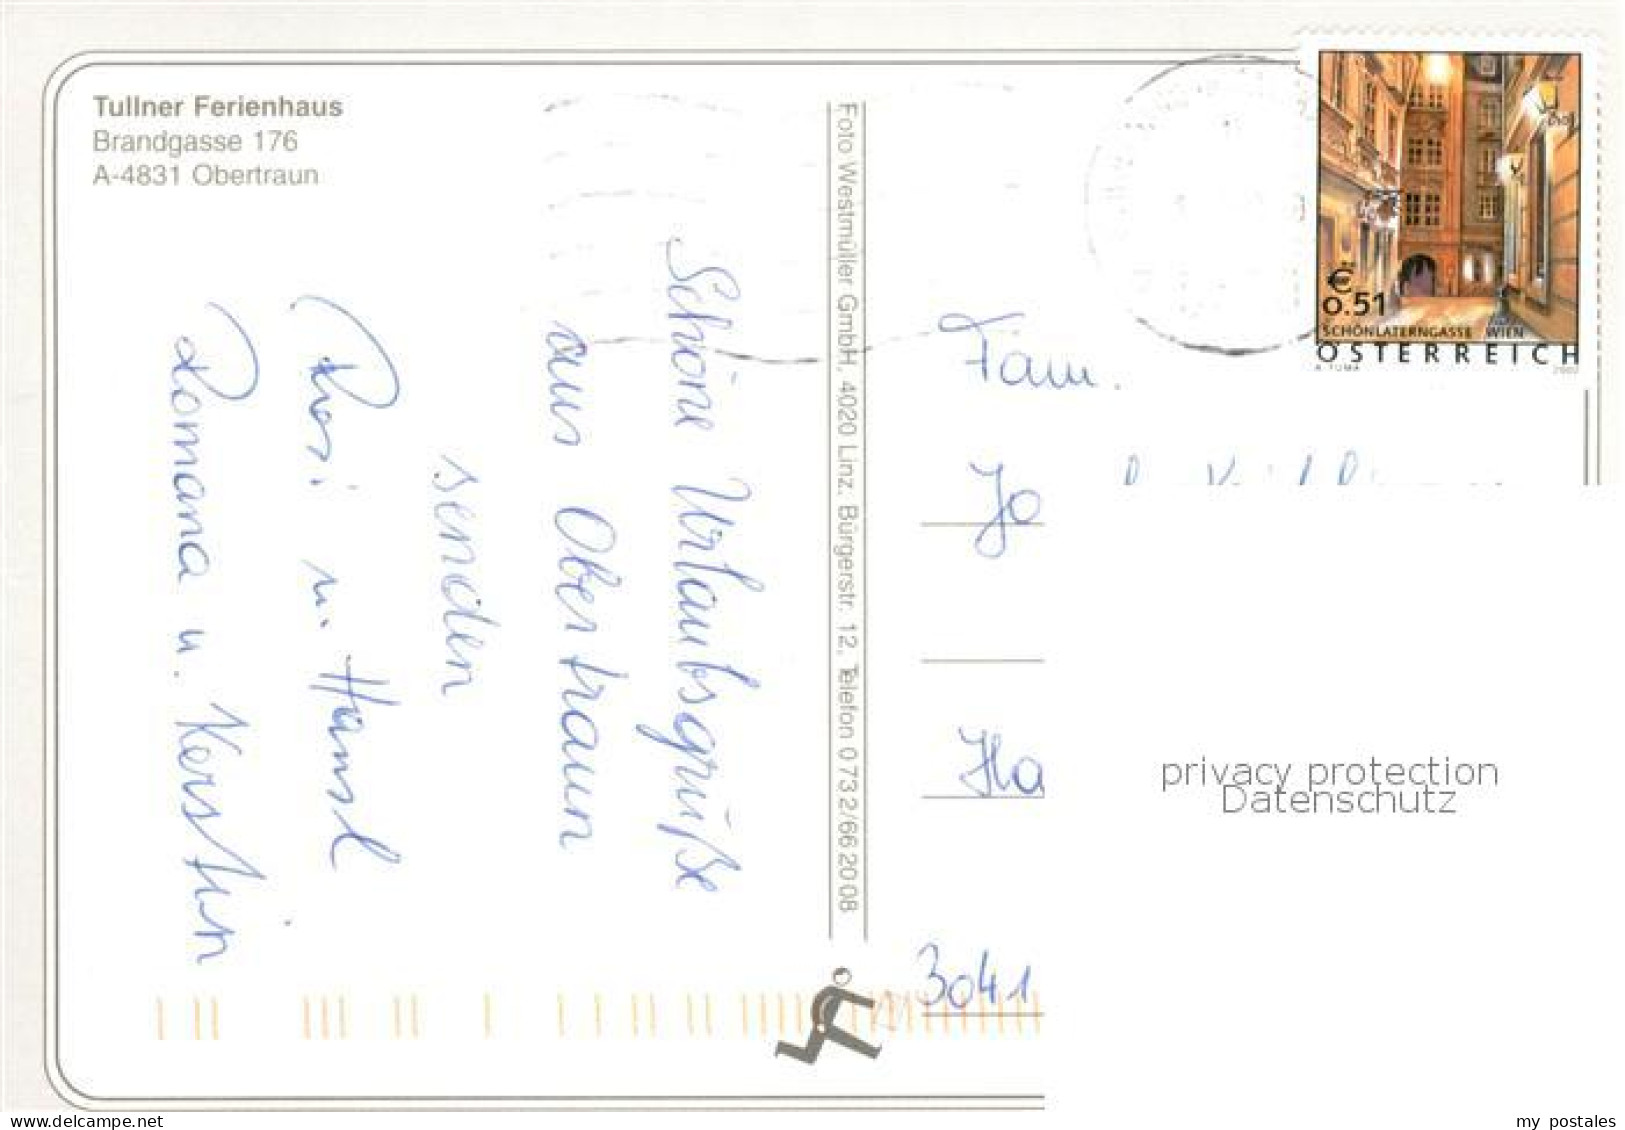 Tullner Ferienhaus
Brandgasse 176
A-4831 Obertraun
Schöne Urlaubsgrüße
aus Obertraun
senden
Rosi u. Hansl
Romana u. Kerstin
Foto Westmüller GmbH, 4020 Linz, Bürgerstr. 12, Telefon 0732/662008
€
0.51
SCHÖNLATERNGASSE WIEN
ÖSTERREICH
A. TUMA 2002
Fam.
Jo
Ha
3041
privacy protection
Datenschutz
delcampe.net
my postales